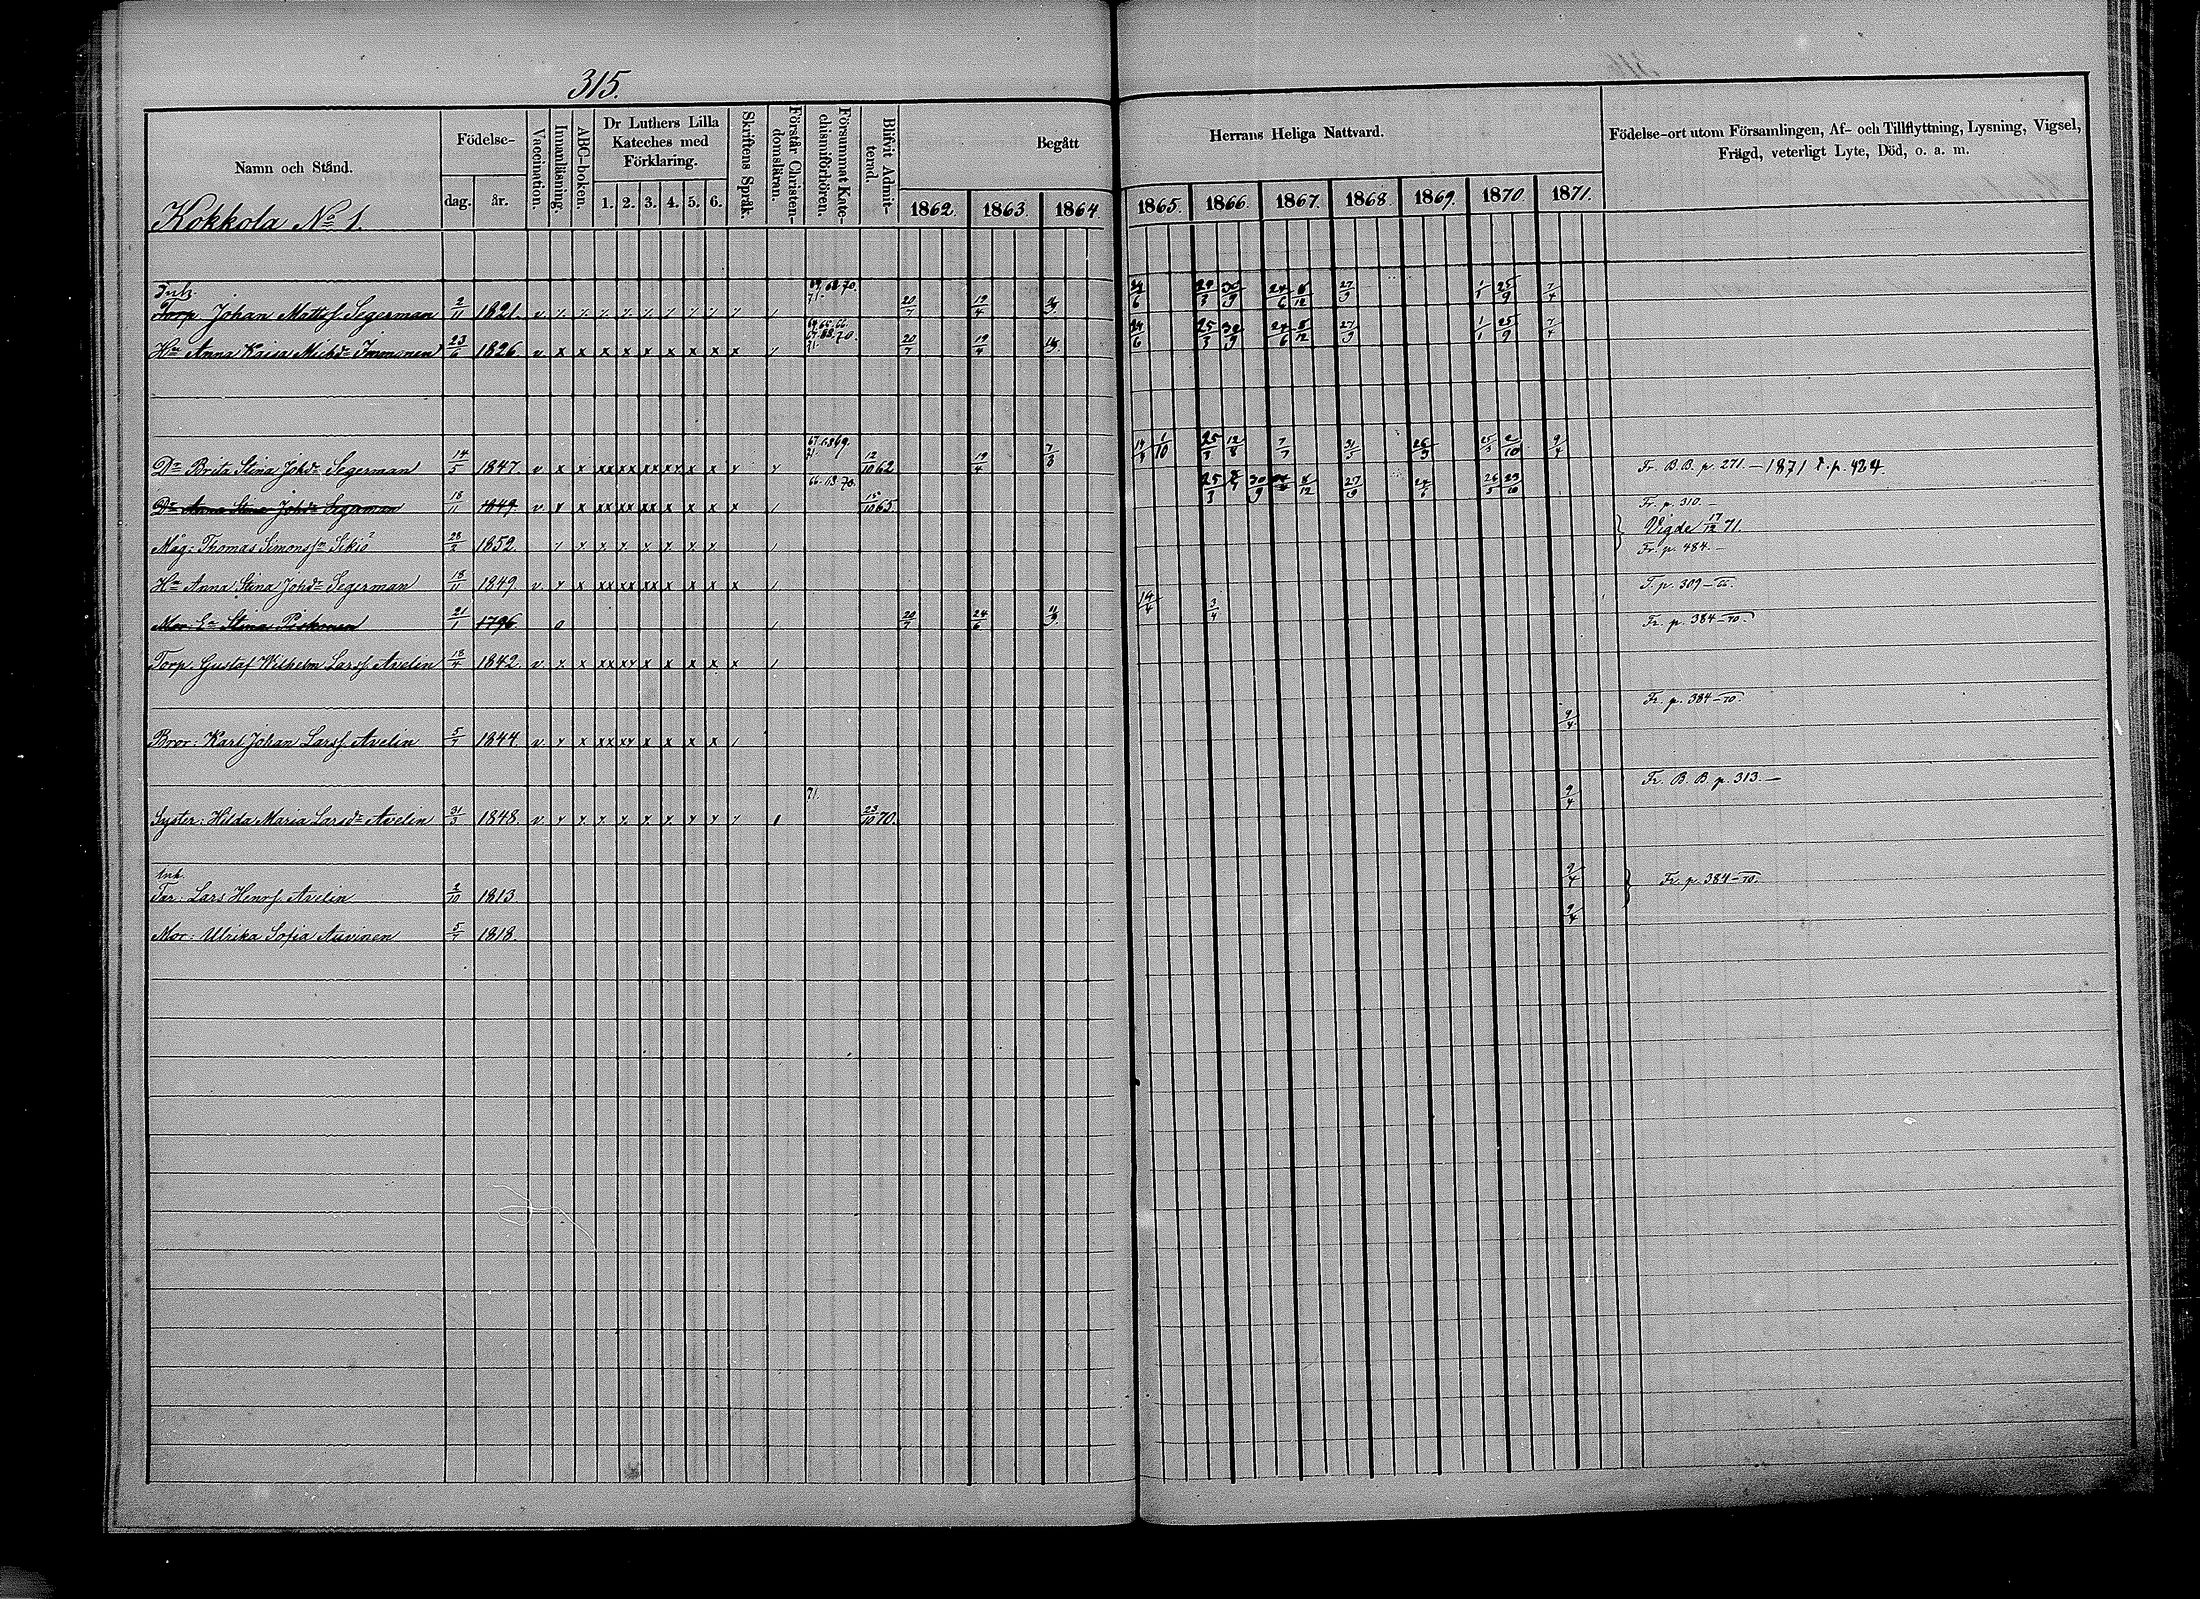 315.
Namn och Stånd.
Födelse-
dag.
år.
Vaccination.
Innanläsning.
ABC-boken.
Dr Luthers Lilla Kateches med Förklaring.
1. 2. 3. 4. 5. 6.
Skriftens Språk.
Förstår Christen-domsläran.
Försummat Kate-chismiförhören.
Blifvit Admit-terad.
Begått Herrans Heliga Nattvard.
1862. 1863. 1864. 1865. 1866. 1867. 1868. 1869. 1870. 1871.
Födelse-ort utom Församlingen, Af- och Tillflyttning, Lysning, Vigsel,
Frägd, veterligt Lyte, Död, o. a. m.
Kokkola No 1.
Torp. Johan Mattsf. Segerman 2/11 1821. v 20/7 19/4 24/6 30/9 24/6 27/9 1/1 25/9 7/4
Hu Anna Kaisa Michdr Immonen 23/6 1826. v x x x x x x x x x 20/7 19/4 24/6 25/3 30/9 24/6 27/9 1/1 25/9 7/4
Dr Brita Stina Johdr Segerman 14/5 1847. v x x xx xx xx x x 12/10 62 19/4 7/3 1/10 25/3 12/8 7/7 9/4 Fr. B.B. p. 271. — 1871 t. p. 424.
Dr Anna Stina Johdr Segerman 18/11 1849. v x x xx xx xx x x x x 66. 70. 15/10 65. 25/3 30/9 27/9 Fr. p. 310. —
Måg: Thomas Simonsson Sikiö 28/2 1852. Vigde 17/12 71.
Fr. p. 484. —
Hu Anna Stina Johdr Segerman 18/11 1849. v x x xx xx xx x x x x T. p. 309 —
Mor: Ea Stina Piskonen 21/1 1796 0 20/7 24/6 14/4 3/4 Fr. p. 384 — 70.
Torp. Gustaf Wilhelm Larsf. Avelin 18/4 1842. v x x xx xx x x x x x
Fr. p. 384 — 70.
Bror: Karl Johan Larsf. Avelin 5/7 1844. v x x xx xx x x x x 9/4
Fr. B. B p. 313. —
Syster: Hilda Maria Larsdr Avelin 31/3 1848. v 71. 23/10 70. 9/4
Ink.
Far: Lars Henrsf. Avelin 2/10 1813 9/4 Fr. p. 384 — 70.
Mor: Ulrika Sofia Auvinen 5/7 1818. 9/4